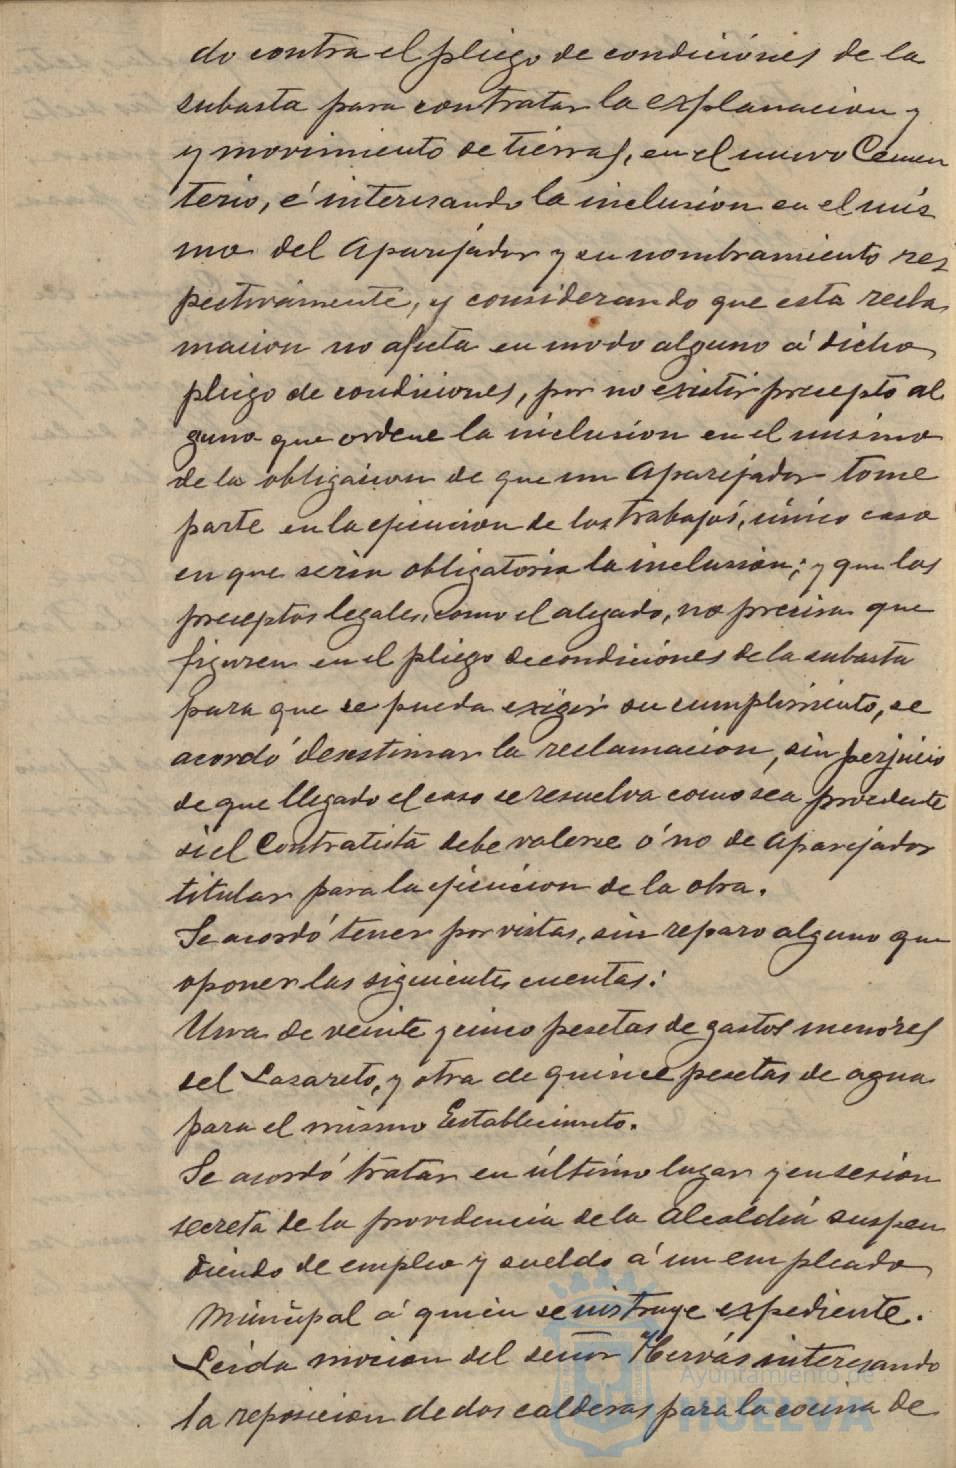 do contra el pliego de condiciones de la
subasta para contratar la explanacion y
y movimiento de tierras, en el nuevo Cemen
terio, é interesando la inclusion en el mis
mo del Aparejador y su nombramiento res
pectivamente, y considerando que esta recla
macion no afecta en modo alguno á dicho
pliego de condiciones, por no existir precepto al
guno que ordene la inclusion en el mismo
de la obligacion de que un Aparejador tome
parte en la ejecucion de los trabajos, único caso
en que seria obligatoria la inclusion; y que los
preceptos legales, como el alegado, no precisa que
figuren en el pliego de condiciones de la subasta
para que se pueda exigir su cumplimiento, se
acordó desestimar la reclamacion, sin perjuicio
de que llegado el caso se resuelva como sea procedente
si el Contratista debe valerse ó no de Aparejador
titular para la ejecucion de la obra.
Se acordó tener por vistas, sin reparo alguno que
oponer las siguientes cuentas:
Una de veinte y cinco pesetas de gastos menores
del Lazareto, y otra de quince pesetas de agua
para el mismo Establecimiento.
Se acordó tratar en último lugar y en sesion
secreta de la providencia de la Alcaldia suspen
diendo de empleo y sueldo á un empleado
Municipal á quien se instruye expediente.
Leida mocion del señor Hervás interesando
la reposicion de dos calderas para la cocina de
Ayuntamiento de
HUELVA